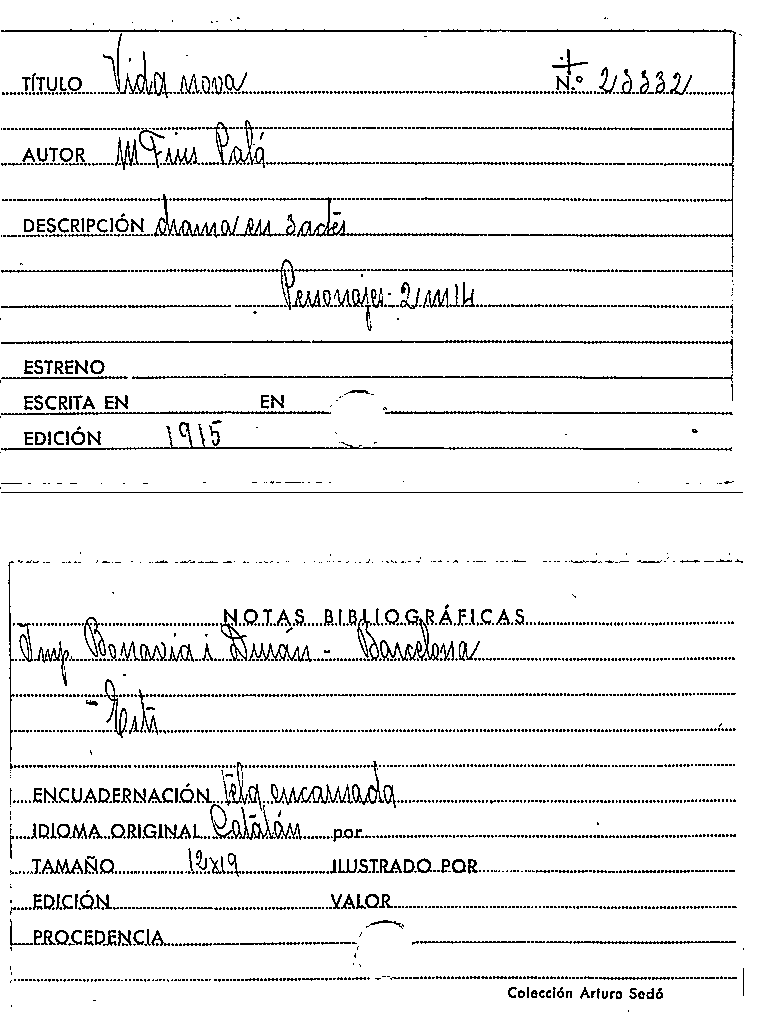 TÍTULO Vida nova N.º 23332
AUTOR M Fius Palá
DESCRIPCIÓN drama en 3 actes
Personajes - 2 m 14
ESTRENO
ESCRITA EN EN
EDICIÓN 1915
NOTAS BIBLIOGRÁFICAS
Imp Bonavia i Durán - Barcelona
ENCUADERNACIÓN tela encarnada
IDIOMA ORIGINAL Catalán por
TAMAÑO 12x19 ILUSTRADO POR
EDICIÓN VALOR
PROCEDENCIA
Colección Arturo Sedó